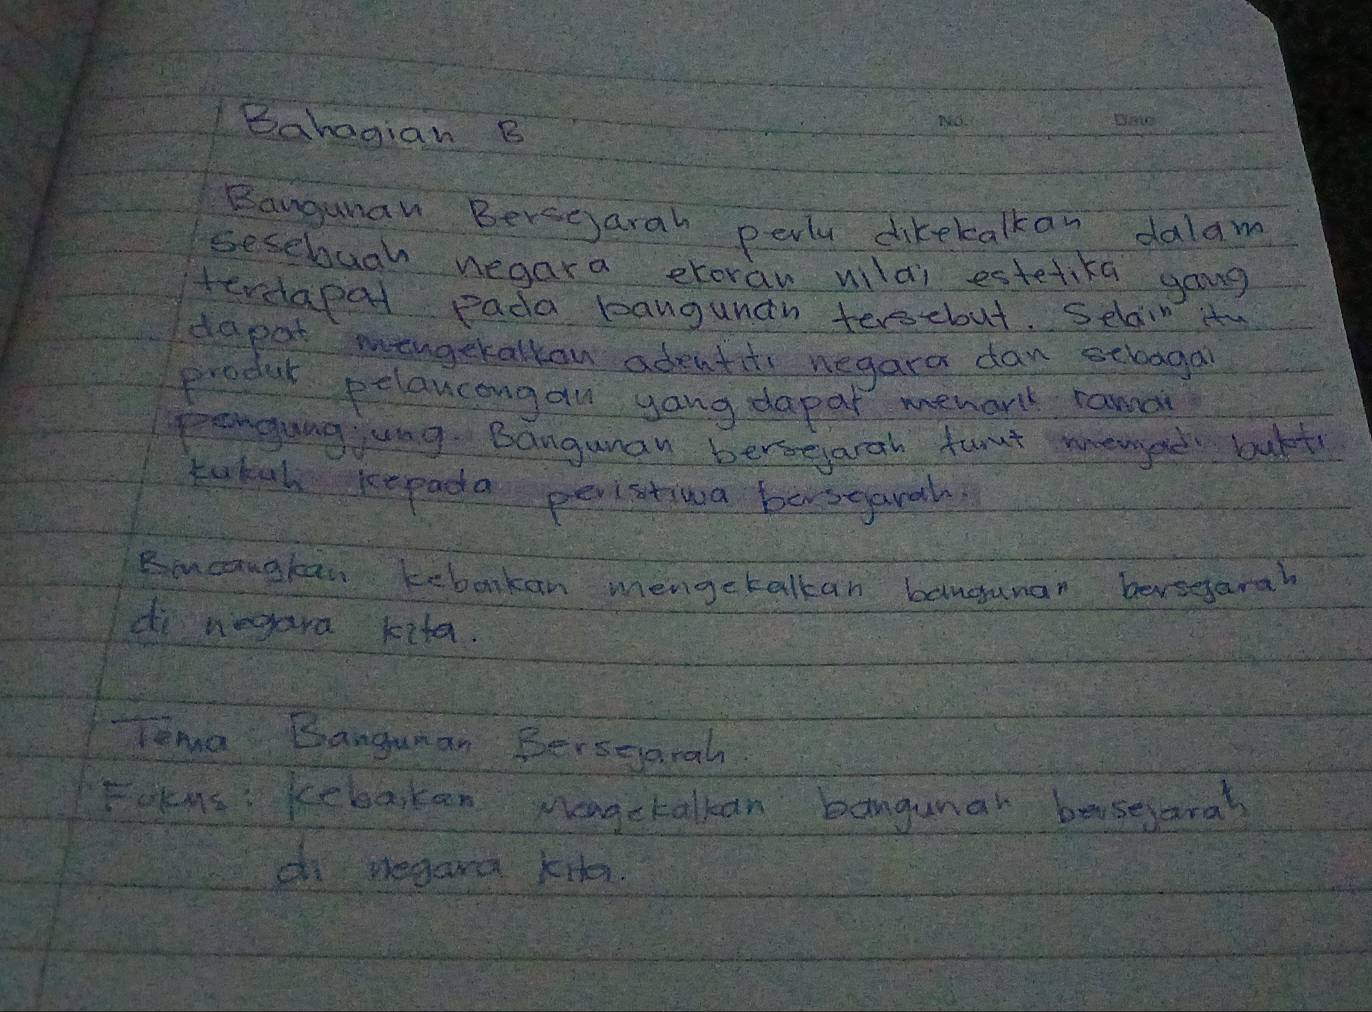 No.
Date
Bahagian B
Bangunan Bersejarah perlu dikekalkan dalam
sesebuah negara ekoran nilai estetika yang
terdapat pada bangunan tersebut. Selain itu
dapat mengekalkan adentiti negara dan sebagai
produk pelancongan yang dapat menarik ramai
pengungjung. Bangunan bersejarah turut menjadi bukti
kukuh kepada peristiwa bersejarah.
Bincangkan kebaikan mengekalkan bangunan bersejarah
di negara kita.
Tema Bangunan Bersejarah.
Fokus: Kebaikan Mengekalkan bangunan bersejarah
di negara kita.